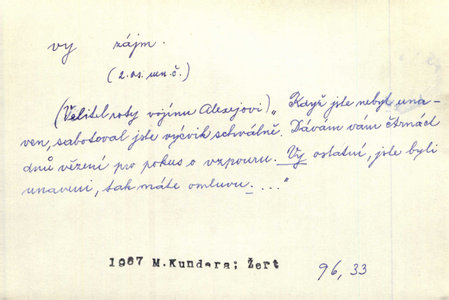 vy zájm.
(2. os. mn. č.)
(Velitel roty vojínu Alexejovi) „Když jste nebyl una-
ven, sabotoval jste výcvik schválně. Dávám vám čtrnáct
dnů vězení pro pokus o vzpouru. Vy ostatní, jste byli
unaveni, tak máte omluvu. ..."
1967 M.Kundera; Žert 96, 33